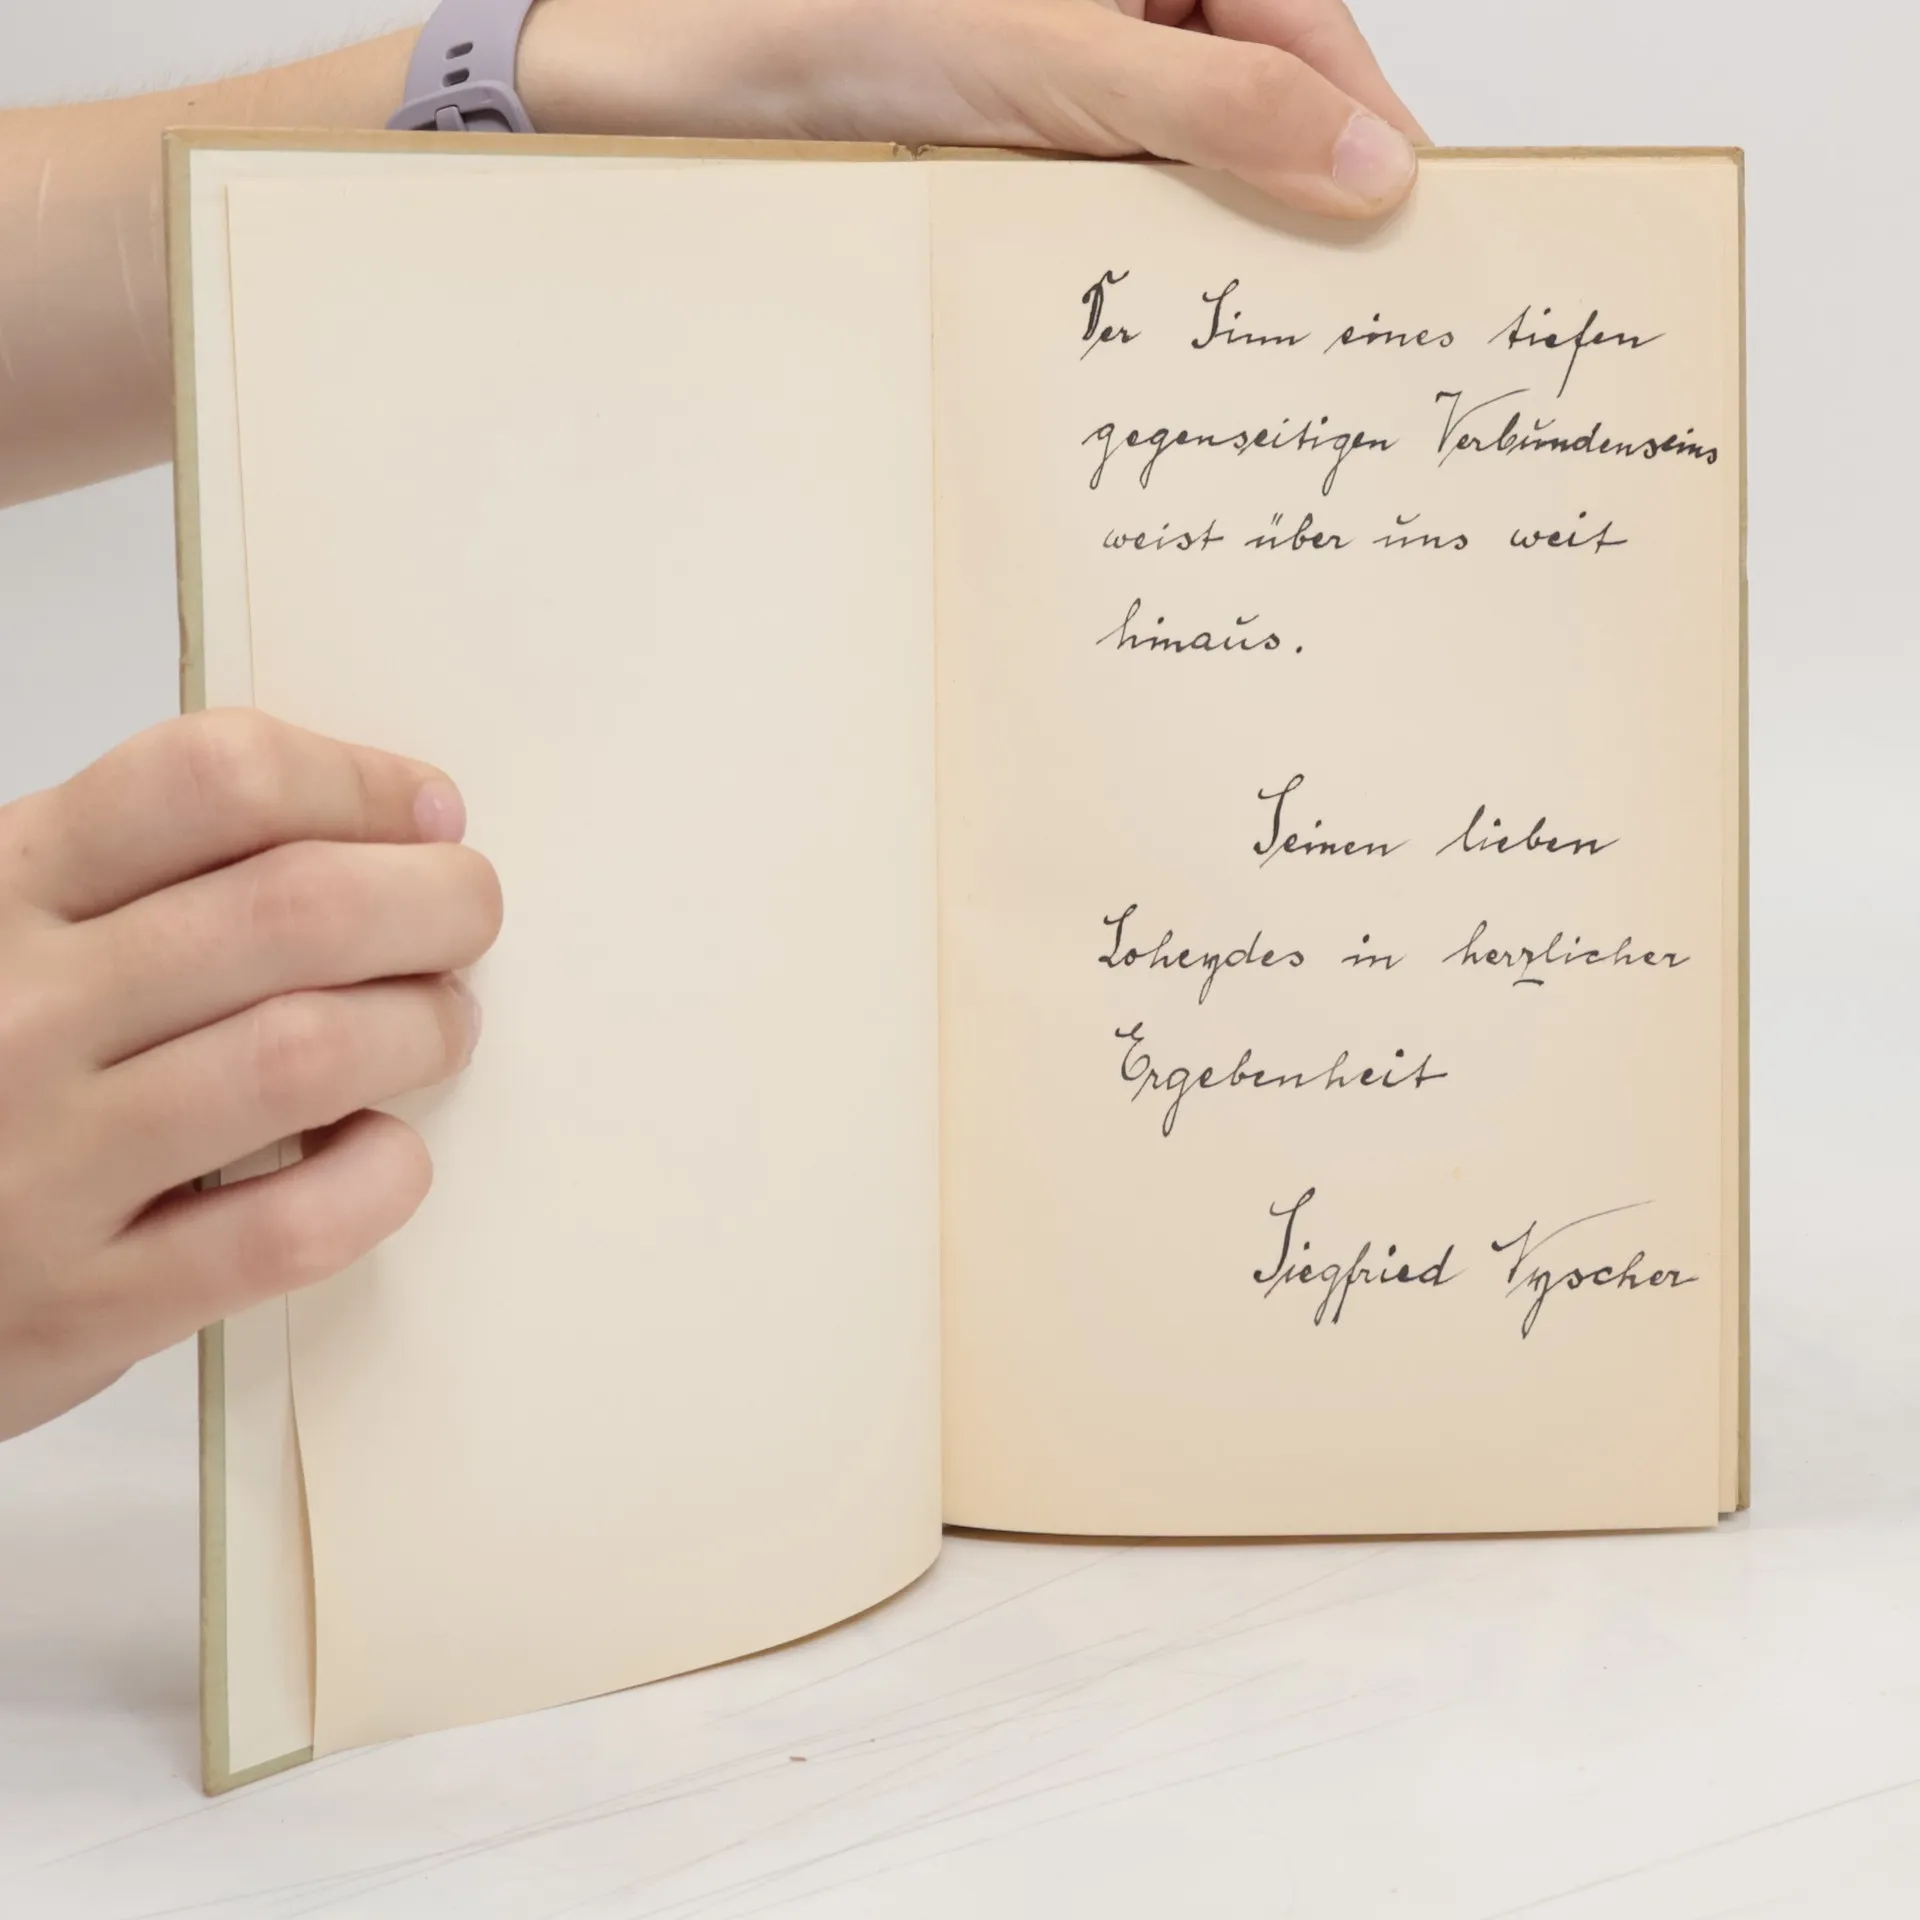 Der Sinn eines tiefen
gegenseitigen Verbundenseins
weist über uns weit
hinaus.
Seinen lieben
Loheydes in herzlicher
Ergebenheit
Siegfried Vyscher